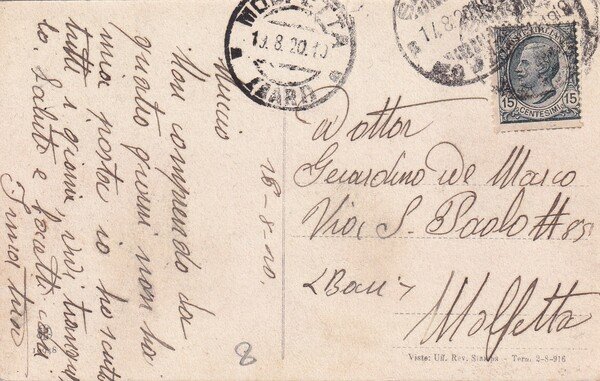 MOLFETTA
19.8.20.10
(BARI)
17.8.20
POSTE ITALIANE
15 CENTESIMI 15
Nuccio
Non comprendo da
quattro giorni non ho
mia posta io ho scritto
tutti i giorni, vivi tranquil
lo. Saluto e baci
Tina tua
18-8-20.
Dottor
Gerardino De Marco
Via S. Paolo # 85
(Bari)
Molfetta
8
Visto: Uff. Rev. Stampa - Term. 2-8-916